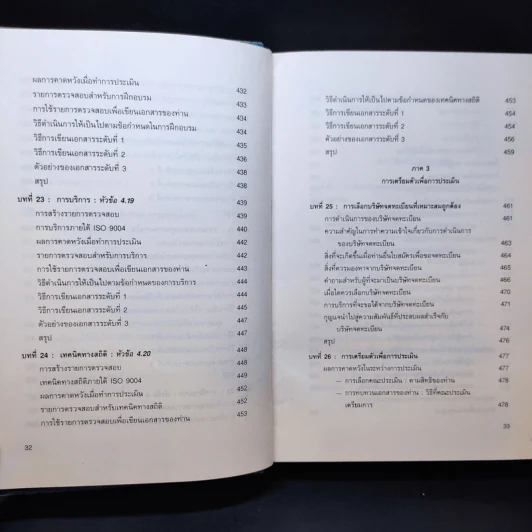 ผลการคาดหวังเมื่อทำการประเมิน 432
รายการตรวจสอบสำหรับการฝึกอบรม 434
การใช้รายการตรวจสอบเพื่อเขียนเอกสารของท่าน 434
วิธีดำเนินการให้เป็นไปตามข้อกำหนดในการฝึกอบรม 434
วิธีการเขียนเอกสารระดับที่ 1 435
วิธีการเขียนเอกสารระดับที่ 2 436
ตัวอย่างของเอกสารระดับที่ 3 438
สรุป 438
บทที่ 23 : การบริการ : หัวข้อ 4.19 439
การสร้างรายการตรวจสอบ 439
การบริการภายใต้ ISO 9004 440
ผลการคาดหวังเมื่อทำการประเมิน 442
รายการตรวจสอบสำหรับการบริการ 442
การใช้รายการตรวจสอบเพื่อเขียนเอกสารของท่าน 443
วิธีดำเนินการให้เป็นไปตามข้อกำหนดของการบริการ 444
วิธีการเขียนเอกสารระดับที่ 1
วิธีการเขียนเอกสารระดับที่ 2
ตัวอย่างของเอกสารระดับที่ 3
สรุป
บทที่ 24 : เทคนิคทางสถิติ : หัวข้อ 4.20 448
การสร้างรายการตรวจสอบ 448
เทคนิคทางสถิติภายใต้ ISO 9004
ผลการคาดหวังเมื่อทำการประเมิน
รายการตรวจสอบสำหรับเทคนิคทางสถิติ 452
การใช้รายการตรวจสอบเพื่อเขียนเอกสารของท่าน 453
32
วิธีดำเนินการให้เป็นไปตามข้อกำหนดของเทคนิคทางสถิติ 453
วิธีการเขียนเอกสารระดับที่ 1 454
วิธีการเขียนเอกสารระดับที่ 2 454
ตัวอย่างของเอกสารระดับที่ 3 456
สรุป 459
ภาค 3
การเตรียมตัวเพื่อการประเมิน
บทที่ 25 : การเลือกบริษัทจดทะเบียนที่เหมาะสมถูกต้อง 461
การดำเนินการของบริษัทจดทะเบียน 461
ความสำคัญในการทำความเข้าใจเกี่ยวกับการดำเนินการ
ของบริษัทจดทะเบียน
สิ่งที่จะเกิดขึ้นเมื่อท่านยื่นใบสมัครเพื่อขอจดทะเบียน
สิ่งที่ควรมองหาจากบริษัทจดทะเบียน 465
คำถามสำหรับผู้ที่จะมาเป็นบริษัทจดทะเบียน 466
เมื่อใดควรเลือกบริษัทจดทะเบียน 470
การบริการที่จะขอได้จากบริษัทจดทะเบียน 471
กุญแจนำไปสู่ความสัมพันธ์ที่ประสบผลสำเร็จกับ
บริษัทจดทะเบียน 474
สรุป 476
บทที่ 26 : การเตรียมตัวเพื่อการประเมิน 477
ผลการคาดหวังในระหว่างการประเมิน 477
— การเลือกคณะประเมิน : ตามสิทธิของท่าน 478
— การทบทวนเอกสารของท่าน : วิธีที่คณะประเมิน
เตรียมการ 478
33